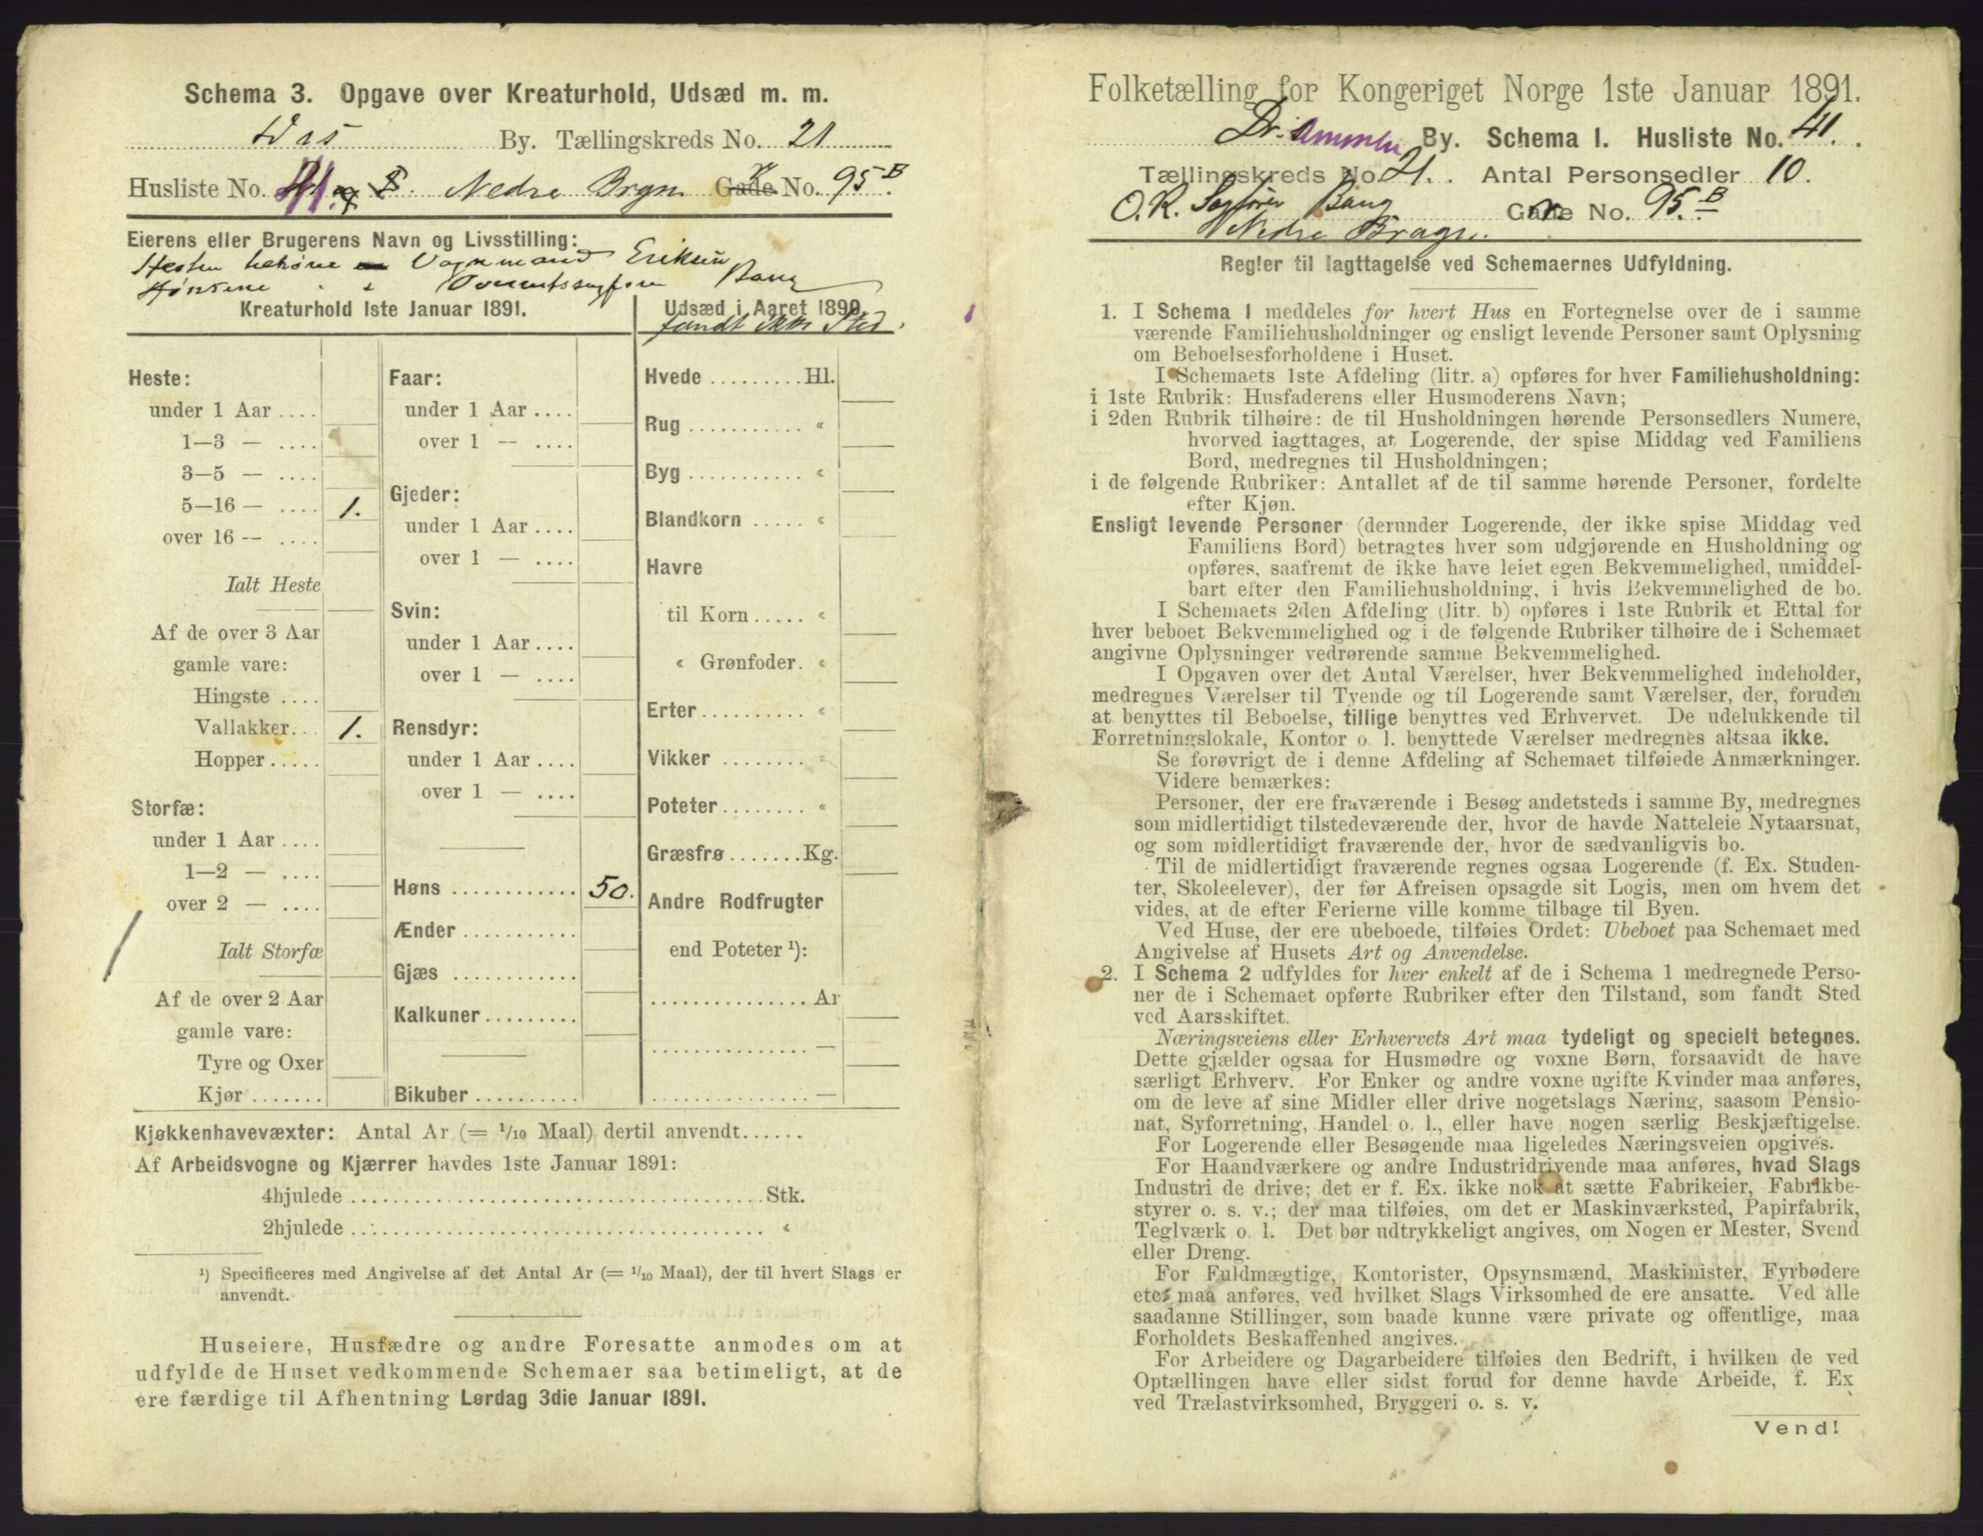 Schema 3. Opgave over Kreaturhold, Udsæd m. m.
By. Tællingskreds No. 21
Husliste No. 41. Nedre Brgn Gade No. 95 B
Eierens eller Brugerens Navn og Livsstilling:
Hesten tilhører Vognmand Eriksen
Hønsene " Overretssagfører Bang
Kreaturhold 1ste Januar 1891.
Heste:
under 1 Aar ....
1—3 — ....
3—5 — ....
5—16 — .... 1.
over 16 — ....
Ialt Heste
Af de over 3 Aar
gamle vare:
Hingste ....
Vallakker... 1.
Hopper.....
Storfæ:
under 1 Aar ....
1—2 — ....
over 2 — ....
Ialt Storfæ
Af de over 2 Aar
gamle vare:
Tyre og Oxer
Kjør.......
Faar:
under 1 Aar ....
over 1 — ....
Gjeder:
under 1 Aar ....
over 1 — ....
Svin:
under 1 Aar ....
over 1 — ....
Rensdyr:
under 1 Aar ....
over 1 — ....
Høns ............ 50.
Ænder ...........
Gjæs ............
Kalkuner.........
Bikuber ..........
Udsæd i Aaret 1890.
fandt ikke Sted.
Hvede .........Hl.
Rug ........... «
Byg ........... «
Blandkorn ..... «
Havre
til Korn ..... «
« Grønfoder. «
Erter.......... «
Vikker ........ «
Poteter ........ «
Græsfrø .......Kg.
Andre Rodfrugter
end Poteter ¹):
............... Ar
............... —
............... —
Kjøkkenhavevæxter: Antal Ar (= 1/10 Maal) dertil anvendt......
Af Arbeidsvogne og Kjærrer havdes 1ste Januar 1891:
4hjulede ........................................Stk.
2hjulede ........................................ «
¹) Specificeres med Angivelse af det Antal Ar (= 1/10 Maal), der til hvert Slags er
anvendt.
Huseiere, Husfædre og andre Foresatte anmodes om at
udfylde de Huset vedkommende Schemaer saa betimeligt, at de
ere færdige til Afhentning Lørdag 3die Januar 1891.
Folketælling for Kongeriget Norge 1ste Januar 1891.
Drammen By. Schema 1. Husliste No. 41.
Tællingskreds No. 21. Antal Personsedler 10.
O. R. Sagfører Bang Gade No. 95. B
Nedre Bragn.
Regler til Iagttagelse ved Schemaernes Udfyldning.
1. I Schema 1 meddeles for hvert Hus en Fortegnelse over de i samme
værende Familiehusholdninger og ensligt levende Personer samt Oplysning
om Beboelsesforholdene i Huset.
I Schemaets 1ste Afdeling (litr. a) opføres for hver Familiehusholdning:
i 1ste Rubrik: Husfaderens eller Husmoderens Navn;
i 2den Rubrik tilhøire: de til Husholdningen hørende Personsedlers Numere,
hvorved iagttages, at Logerende, der spise Middag ved Familiens
Bord, medregnes til Husholdningen;
i de følgende Rubriker: Antallet af de til samme hørende Personer, fordelte
efter Kjøn.
Ensligt levende Personer (derunder Logerende, der ikke spise Middag ved
Familiens Bord) betragtes hver som udgjørende en Husholdning og
opføres, saafremt de ikke have leiet egen Bekvemmelighed, umiddel-
bart efter den Familiehusholdning, i hvis Bekvemmelighed de bo.
I Schemaets 2den Afdeling (litr. b) opføres i 1ste Rubrik et Ettal for
hver beboet Bekvemmelighed og i de følgende Rubriker tilhøire de i Schemaet
angivne Oplysninger vedrørende samme Bekvemmelighed.
I Opgaven over det Antal Værelser, hver Bekvemmelighed indeholder,
medregnes Værelser til Tyende og til Logerende samt Værelser, der, foruden
at benyttes til Beboelse, tillige benyttes ved Erhvervet. De udelukkende til
Forretningslokale, Kontor o. l. benyttede Værelser medregnes altsaa ikke.
Se forøvrigt de i denne Afdeling af Schemaet tilføiede Anmærkninger.
Videre bemærkes:
Personer, der ere fraværende i Besøg andetsteds i samme By, medregnes
som midlertidigt tilstedeværende der, hvor de havde Natteleie Nytaarsnat,
og som midlertidigt fraværende der, hvor de sædvanligvis bo.
Til de midlertidigt fraværende regnes ogsaa Logerende (f. Ex. Studen-
ter, Skoleelever), der før Afreisen opsagde sit Logis, men om hvem det
vides, at de efter Ferierne ville komme tilbage til Byen.
Ved Huse, der ere ubeboede, tilføies Ordet: Ubeboet paa Schemaet med
Angivelse af Husets Art og Anvendelse.
2. I Schema 2 udfyldes for hver enkelt af de i Schema 1 medregnede Perso-
ner de i Schemaet opførte Rubriker efter den Tilstand, som fandt Sted
ved Aarsskiftet.
Næringsveiens eller Erhvervets Art maa tydeligt og specielt betegnes.
Dette gjælder ogsaa for Husmødre og voxne Børn, forsaavidt de have
særligt Erhverv. For Enker og andre voxne ugifte Kvinder maa anføres,
om de leve af sine Midler eller drive nogetslags Næring, saasom Pensio-
nat, Syforretning, Handel o. l., eller have nogen særlig Beskjæftigelse.
For Logerende eller Besøgende maa ligeledes Næringsveien opgives.
For Haandværkere og andre Industridrivende maa anføres, hvad Slags
Industri de drive; det er f. Ex. ikke nok at sætte Fabrikeier, Fabrikbe-
styrer o. s. v.; der maa tilføies, om det er Maskinværksted, Papirfabrik,
Teglværk o. l. Det bør udtrykkeligt angives, om Nogen er Mester, Svend
eller Dreng.
For Fuldmægtige, Kontorister, Opsynsmænd, Maskinister, Fyrbødere
etc. maa anføres, ved hvilket Slags Virksomhed de ere ansatte. Ved alle
saadanne Stillinger, som baade kunne være private og offentlige, maa
Forholdets Beskaffenhed angives.
For Arbeidere og Dagarbeidere tilføies den Bedrift, i hvilken de ved
Optællingen have eller sidst forud for denne havde Arbeide, f. Ex
ved Trælastvirksomhed, Bryggeri o. s. v.
Vend!